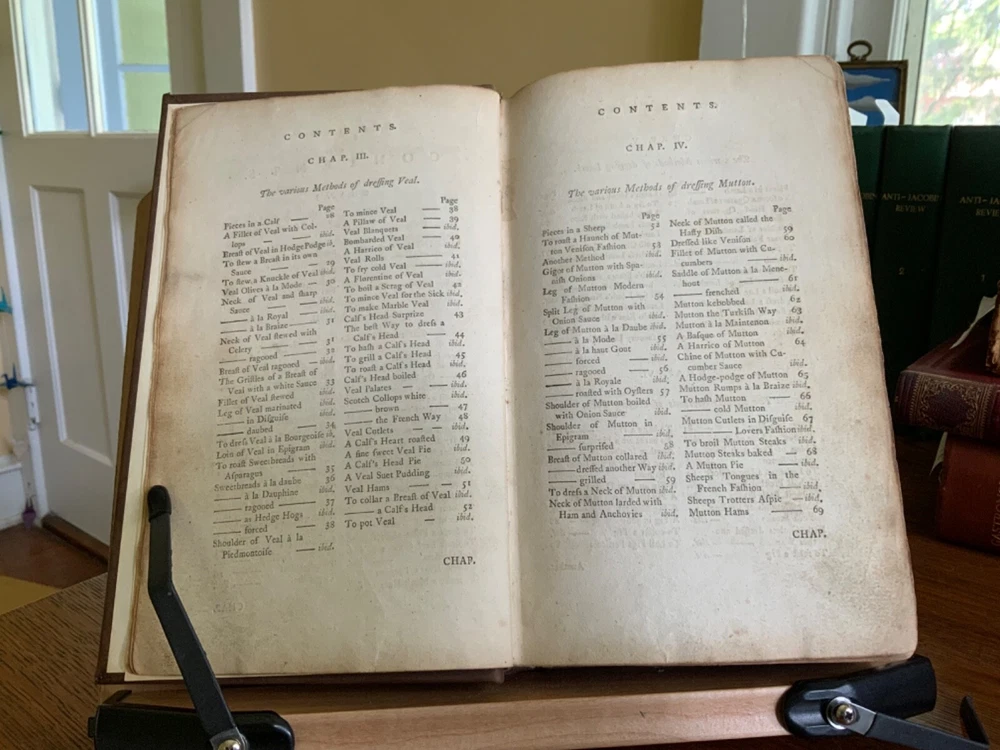 CONTENTS.
CHAP. III.
The various Methods of dreſſing Veal.
Page
Pieces in a Calf — 28
A Fillet of Veal with Col-
lops — ibid.
Breaſt of Veal in Hodge Podge ib.
To ſtew a Breaſt in its own
Sauce — — 29
To ſtew a Knuckle of Veal ibid.
Veal Olives à la Mode — 30
Neck of Veal and ſharp
Sauce — — ibid.
—— à la Royal — ibid.
—— à la Braize — 31
Neck of Veal ſtewed with
Celery — — 31
—— ragooed — 32
Breaſt of Veal ragooed — ibid.
The Griſtles of a Breaſt of
Veal with a white Sauce 33
Fillet of Veal ſtewed ibid.
Leg of Veal marinated ibid.
—— in Diſguiſe ibid.
—— daubed — 34
To dreſs Veal à la Bourgeoiſe ib.
Loin of Veal in Epigram ibid.
To roaſt Sweetbreads with
Aſparagus — 35
Sweetbreads à la daube 36
—— à la Dauphine ibid.
—— ragooed — 37
—— as Hedge Hogs ibid.
—— forced — 38
Shoulder of Veal à la
Piedmontoiſe — ibid.
Page
To mince Veal — 38
A Pillaw of Veal — 39
Veal Blanquets — ibid.
Bombarded Veal — 40
A Harrico of Veal ibid.
Veal Rolls — 41
To fry cold Veal — ibid.
A Florentine of Veal ibid.
To boil a Scrag of Veal 42
To mince Veal for the Sick ibid.
To make Marble Veal ibid.
Calf's Head Surprize 43
The beſt Way to dreſs a
Calf's Head — 44
To haſh a Calf's Head ibid.
To grill a Calf's Head 45
To roaſt a Calf's Head ibid.
Calf's Head boiled 46
Veal Palates — — ibid.
Scotch Collops white ibid.
—— brown — 47
—— the French Way 48
Veal Cutlets — — ibid.
A Calf's Heart roaſted 49
A fine ſweet Veal Pie ibid.
A Calf's Head Pie 50
A Veal Suet Pudding ibid.
Veal Hams — — 51
To collar a Breaſt of Veal ibid.
—— a Calf's Head 52
To pot Veal — ibid.
CHAP.
CONTENTS.
CHAP. IV.
The various Methods of dreſſing Mutton.
Page
Pieces in a Sheep 52
To roaſt a Haunch of Mut-
ton Veniſon Faſhion 53
Another Method ibid.
Gigot of Mutton with Spa-
niſh Onions ibid.
Leg of Mutton Modern
Faſhion — — 54
Split Leg of Mutton with
Onion Sauce ibid.
Leg of Mutton à la Daube ibid.
—— à la Mode 55
—— à la haut Gout ibid.
—— forced — ibid.
—— ragooed — 56
—— à la Royale ibid.
—— roaſted with Oyſters 57
Shoulder of Mutton boiled
with Onion Sauce ibid.
Shoulder of Mutton in
Epigram — ibid.
—— ſurpriſed 58
Breaſt of Mutton collared ibid.
—— dreſſed another Way ibid.
—— grilled — 59
To dreſs a Neck of Mutton ibid.
Neck of Mutton larded with
Ham and Anchovies ibid.
Page
Neck of Mutton called the
Haſty Diſh 59
Dreſſed like Veniſon 60
Fillet of Mutton with Cu-
cumbers — ibid.
Saddle of Mutton à la Mene-
hout — — 61
—— frenched — ibid.
Mutton kebobbed 62
Mutton the Turkiſh Way 63
Mutton à la Maintenon ibid.
A Baſque of Mutton ibid.
A Harrico of Mutton 64
Chine of Mutton with Cu-
cumber Sauce ibid.
A Hodge-podge of Mutton 65
Mutton Rumps à la Braize ibid.
To haſh Mutton — 66
—— cold Mutton ibid.
Mutton Cutlets in Diſguiſe 67
—— Lovers Faſhion ibid.
To broil Mutton Steaks ibid.
Mutton Steaks baked — 68
A Mutton Pie — ibid.
Sheeps Tongues in the
French Faſhion ibid.
Sheeps Trotters Aſpie — ibid.
Mutton Hams — 69
CHAP.
ANTI-JACOBIN
REVIEW
2